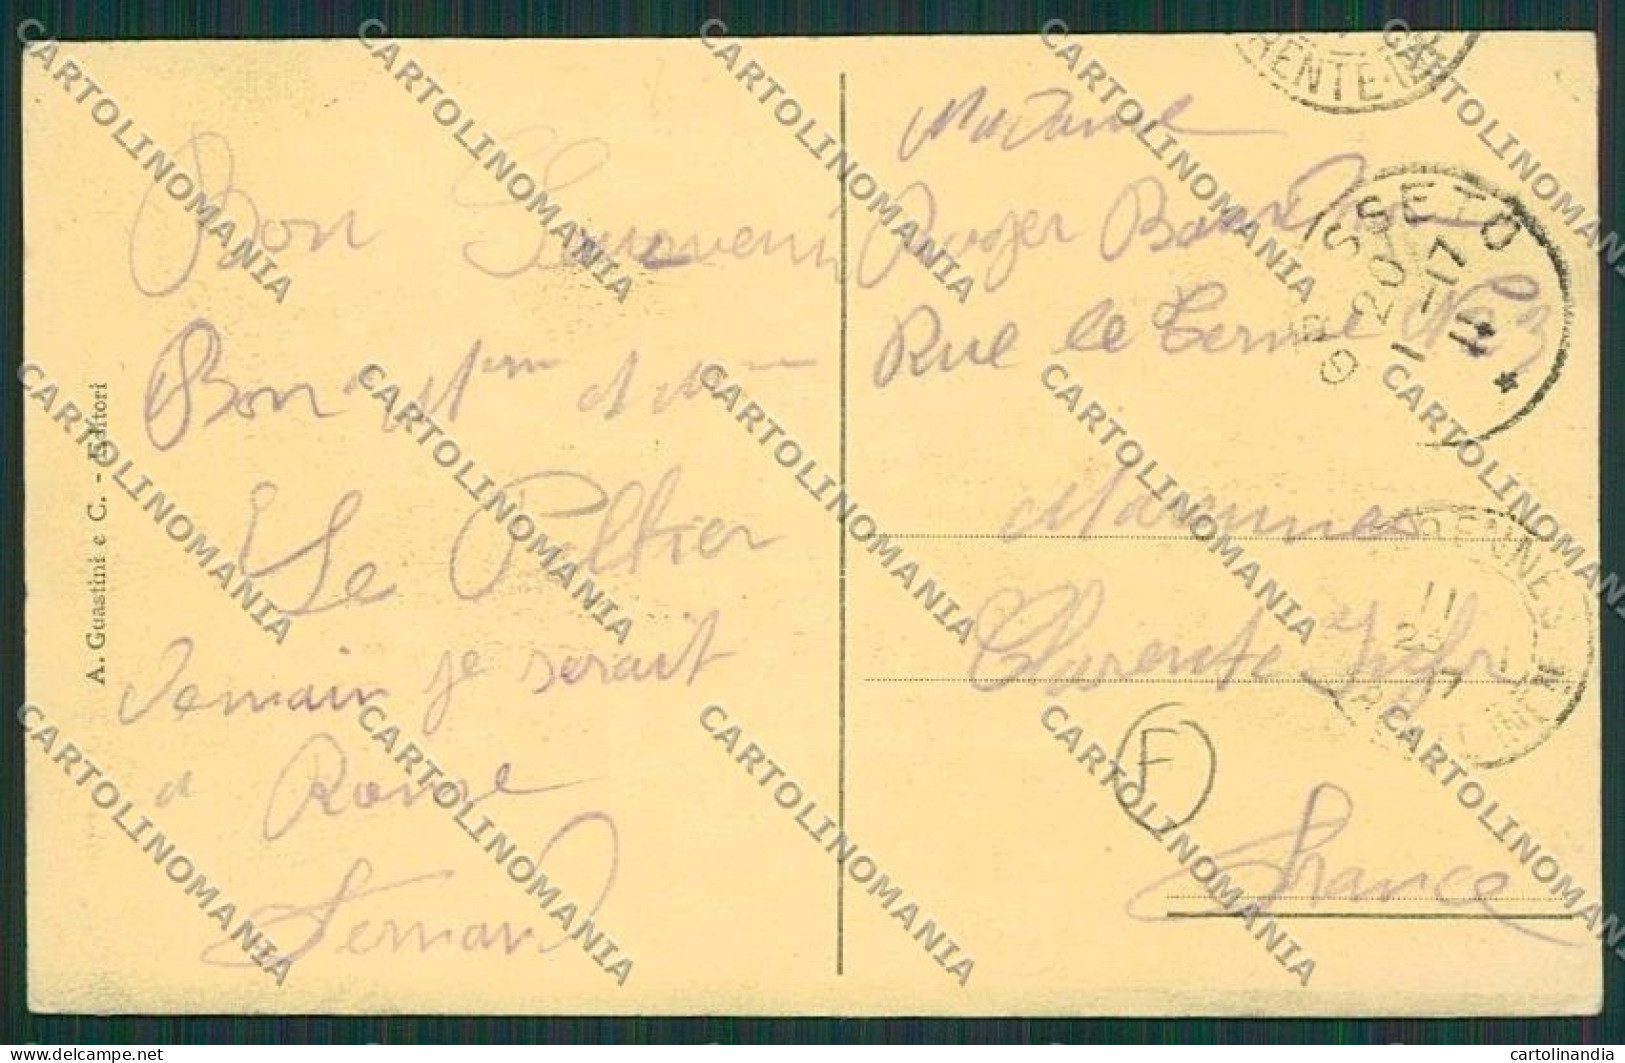 Bon Souvenir
Bon
Le Peltier
Demain je serait
a Rome
Fernand
A. Guastini e C. - Editori
Madame
Roger
Rue le Terme No 3
Marennes
Charente Infre
France
F
GROSSETO
20
11
MARENNES
11
CARTOLINOMANIA
delcampe.net
cartolinandia